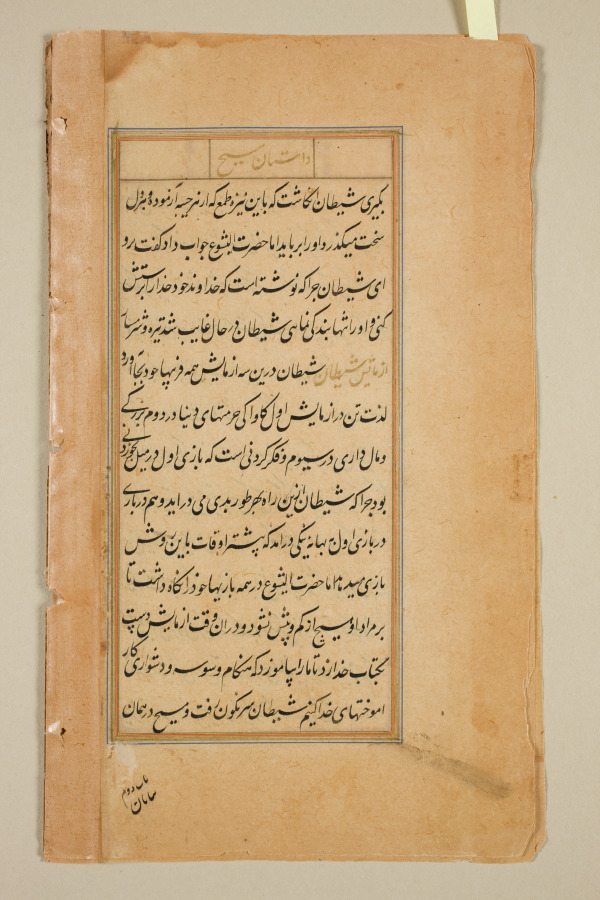 داستان مسیح
بگیری شیطان انگاشت که باین نیزه طمع که از هر چیه آزموده و بزول
سخت میگذرد او را برباید اما حضرت ایشوع جواب داد گفت رو
ای شیطان چراکه نوشته است که خداوند خود خدا را پرستش
کنی و او را تنها بندگی نمایی شیطان در حال غایب شد تیره و شرمسار
از مایش شیطان شیطان درین سه ازمایش همه فرنبها خود بجا آورد
لذت تن در ازمایش اول کاواکی حرمتهای دنیا در دوم بزرگی
و مال داری در سیوم و فکر کردنی است که بازی اول در میل بخوردنی
بود چراکه شیطان ازین راه بهر طور بدی می دراید و هم در باری
در بازی اول به بهانه نیکی درامد که پیشتر اوقات باین روش
بازی میدهد اما حضرت ایشوع در همه بازیها خود را نگاه داشت تا
بر مراد او هیچ از کم و بیش نشود و دران وقت ازمایش دست
بکتاب خدا زد تا ما را بیاموزد که هنگام وسوسه و دشواری کار
اموختهای خدا کنیم شیطان سرنگون رفت و مسیح در همان
باب دوم